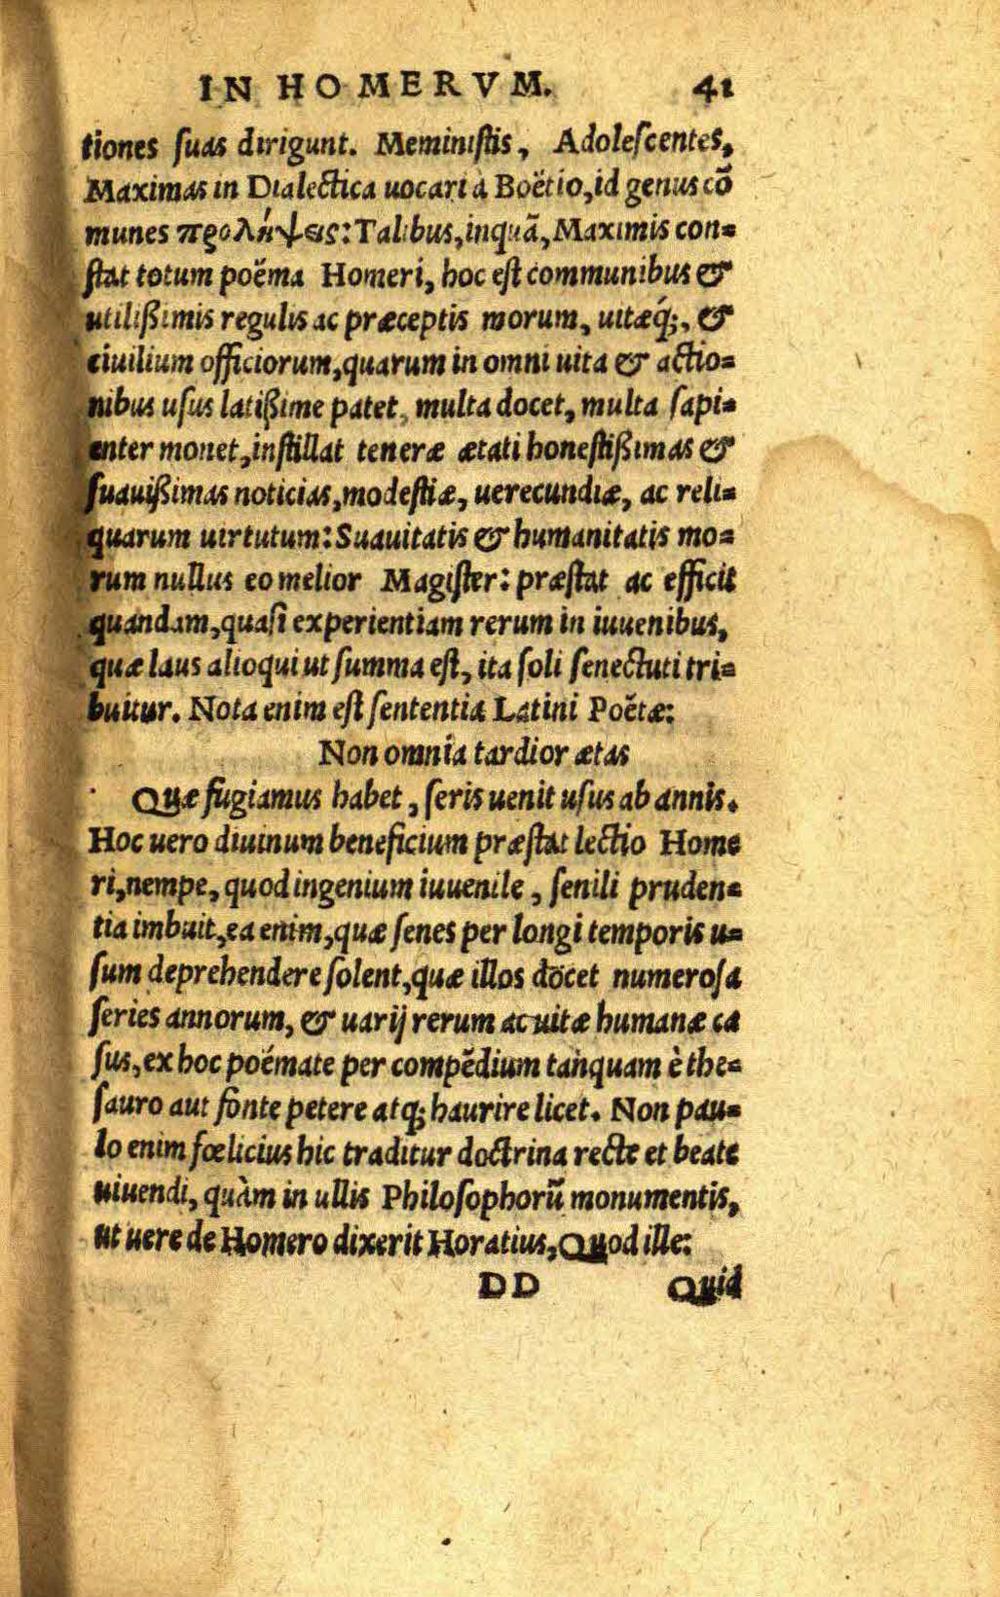 IN HOMERVM. 41
tiones ſuas dirigunt. Meminiſtis, Adoleſcentes,
Maximas in Dialectica uocari à Boëtio, id genus cō
munes προλήψεις: Talibus, inquā, Maximis con=
ſtat totum poëma Homeri, hoc eſt communibus &
utilißimis regulis ac præceptis morum, uitæq́;, &
ciuilium officiorum, quarum in omni uita & actio=
nibus uſus latißime patet, multa docet, multa ſapi=
enter monet, inſtillat teneræ ætati honeſtißimas &
ſuauißimas noticias, modeſtiæ, uerecundiæ, ac reli=
quarum uirtutum: Suauitatis & humanitatis mo=
rum nullus eo melior Magiſter: præſtat ac efficit
quandam, quaſi experientiam rerum in iuuenibus,
quæ laus alioqui ut ſumma eſt, ita ſoli ſenectuti tri=
buitur. Nota enim eſt ſententia Latini Poëtæ:
Non omnia tardior ætas
Quæ fugiamus habet, ſeris uenit uſus ab annis.
Hoc uero diuinum beneficium præſtat lectio Home
ri, nempe, quod ingenium iuuenile, ſenili pruden=
tia imbuit, ea enim, quæ ſenes per longi temporis u=
ſum deprehendere ſolent, quæ illos docet numeroſa
ſeries annorum, & uarij rerum ac uitæ humanæ ca
ſus, ex hoc poëmate per compēdium tanquam è the=
ſauro aut fonte petere atq; haurire licet. Non pau=
lo enim fœlicius hic traditur doctrina recte et beate
uiuendi, quàm in ullis Philoſophorū monumentis,
ut uere de Homero dixerit Horatius, Quod ille:
DD Quid